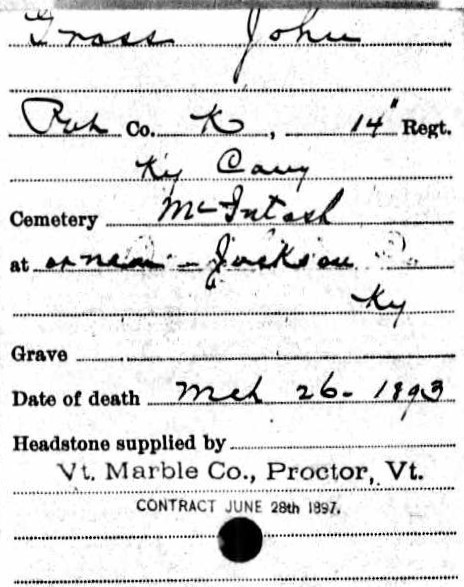 Gross John
Pvt Co. K, 14" Regt.
Ky Cavy
Cemetery McIntosh
at or near - Jackson
Ky
Grave
Date of death Mch 26 - 1893
Headstone supplied by
Vt. Marble Co., Proctor, Vt.
CONTRACT JUNE 28th 1897.